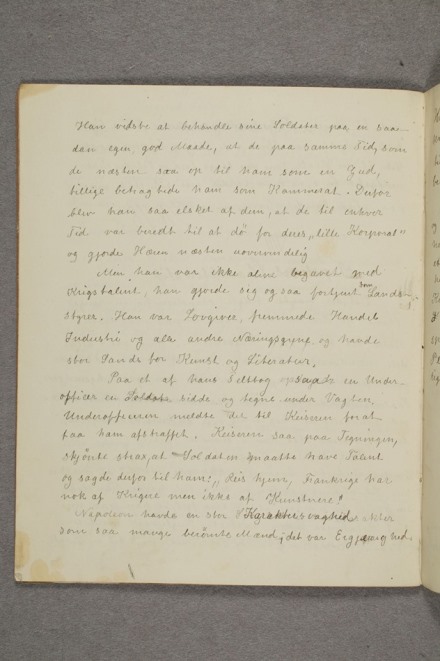 Han vidste at behandle sine Soldater paa en saa-
dan egen god Maade, at de paa samme Tid, som
de næsten saa op til ham som en Gud,
tillige betragtede ham som Kammerat. Derfor
blev han saa elsket af dem, at de til enhver
Tid var beredt til at dø for deres "lille Korporal"
og gjorde Hæren næsten uovervindelig
Men han var ikke alene begavet med
Krigstalent, han gjorde sig ogsaa fortjent som Lands-
styrer. Han var Lovgiver, fremmede Handel
Industri og alle andre Næringsgrene og havde
stor Sands for Kunst og Literatur.
Paa et af hans Felttog opsaade en Under-
officer en Soldat sidde og tegne under Vagten.
Underofficeren meldte det til Keiseren forat
faa ham afstraffet. Keiseren saa paa Tegningen,
skjönte strax, at Soldaten maatte have Talent
og sagde derfor til ham: "Reis hjem, Frankrige har
nok af Krigere men ikke af Kunstnere!"
Napoleon havde en stor Karaktersvaghed
som saa mange berömte Mænd, det var Ergjerrighed.